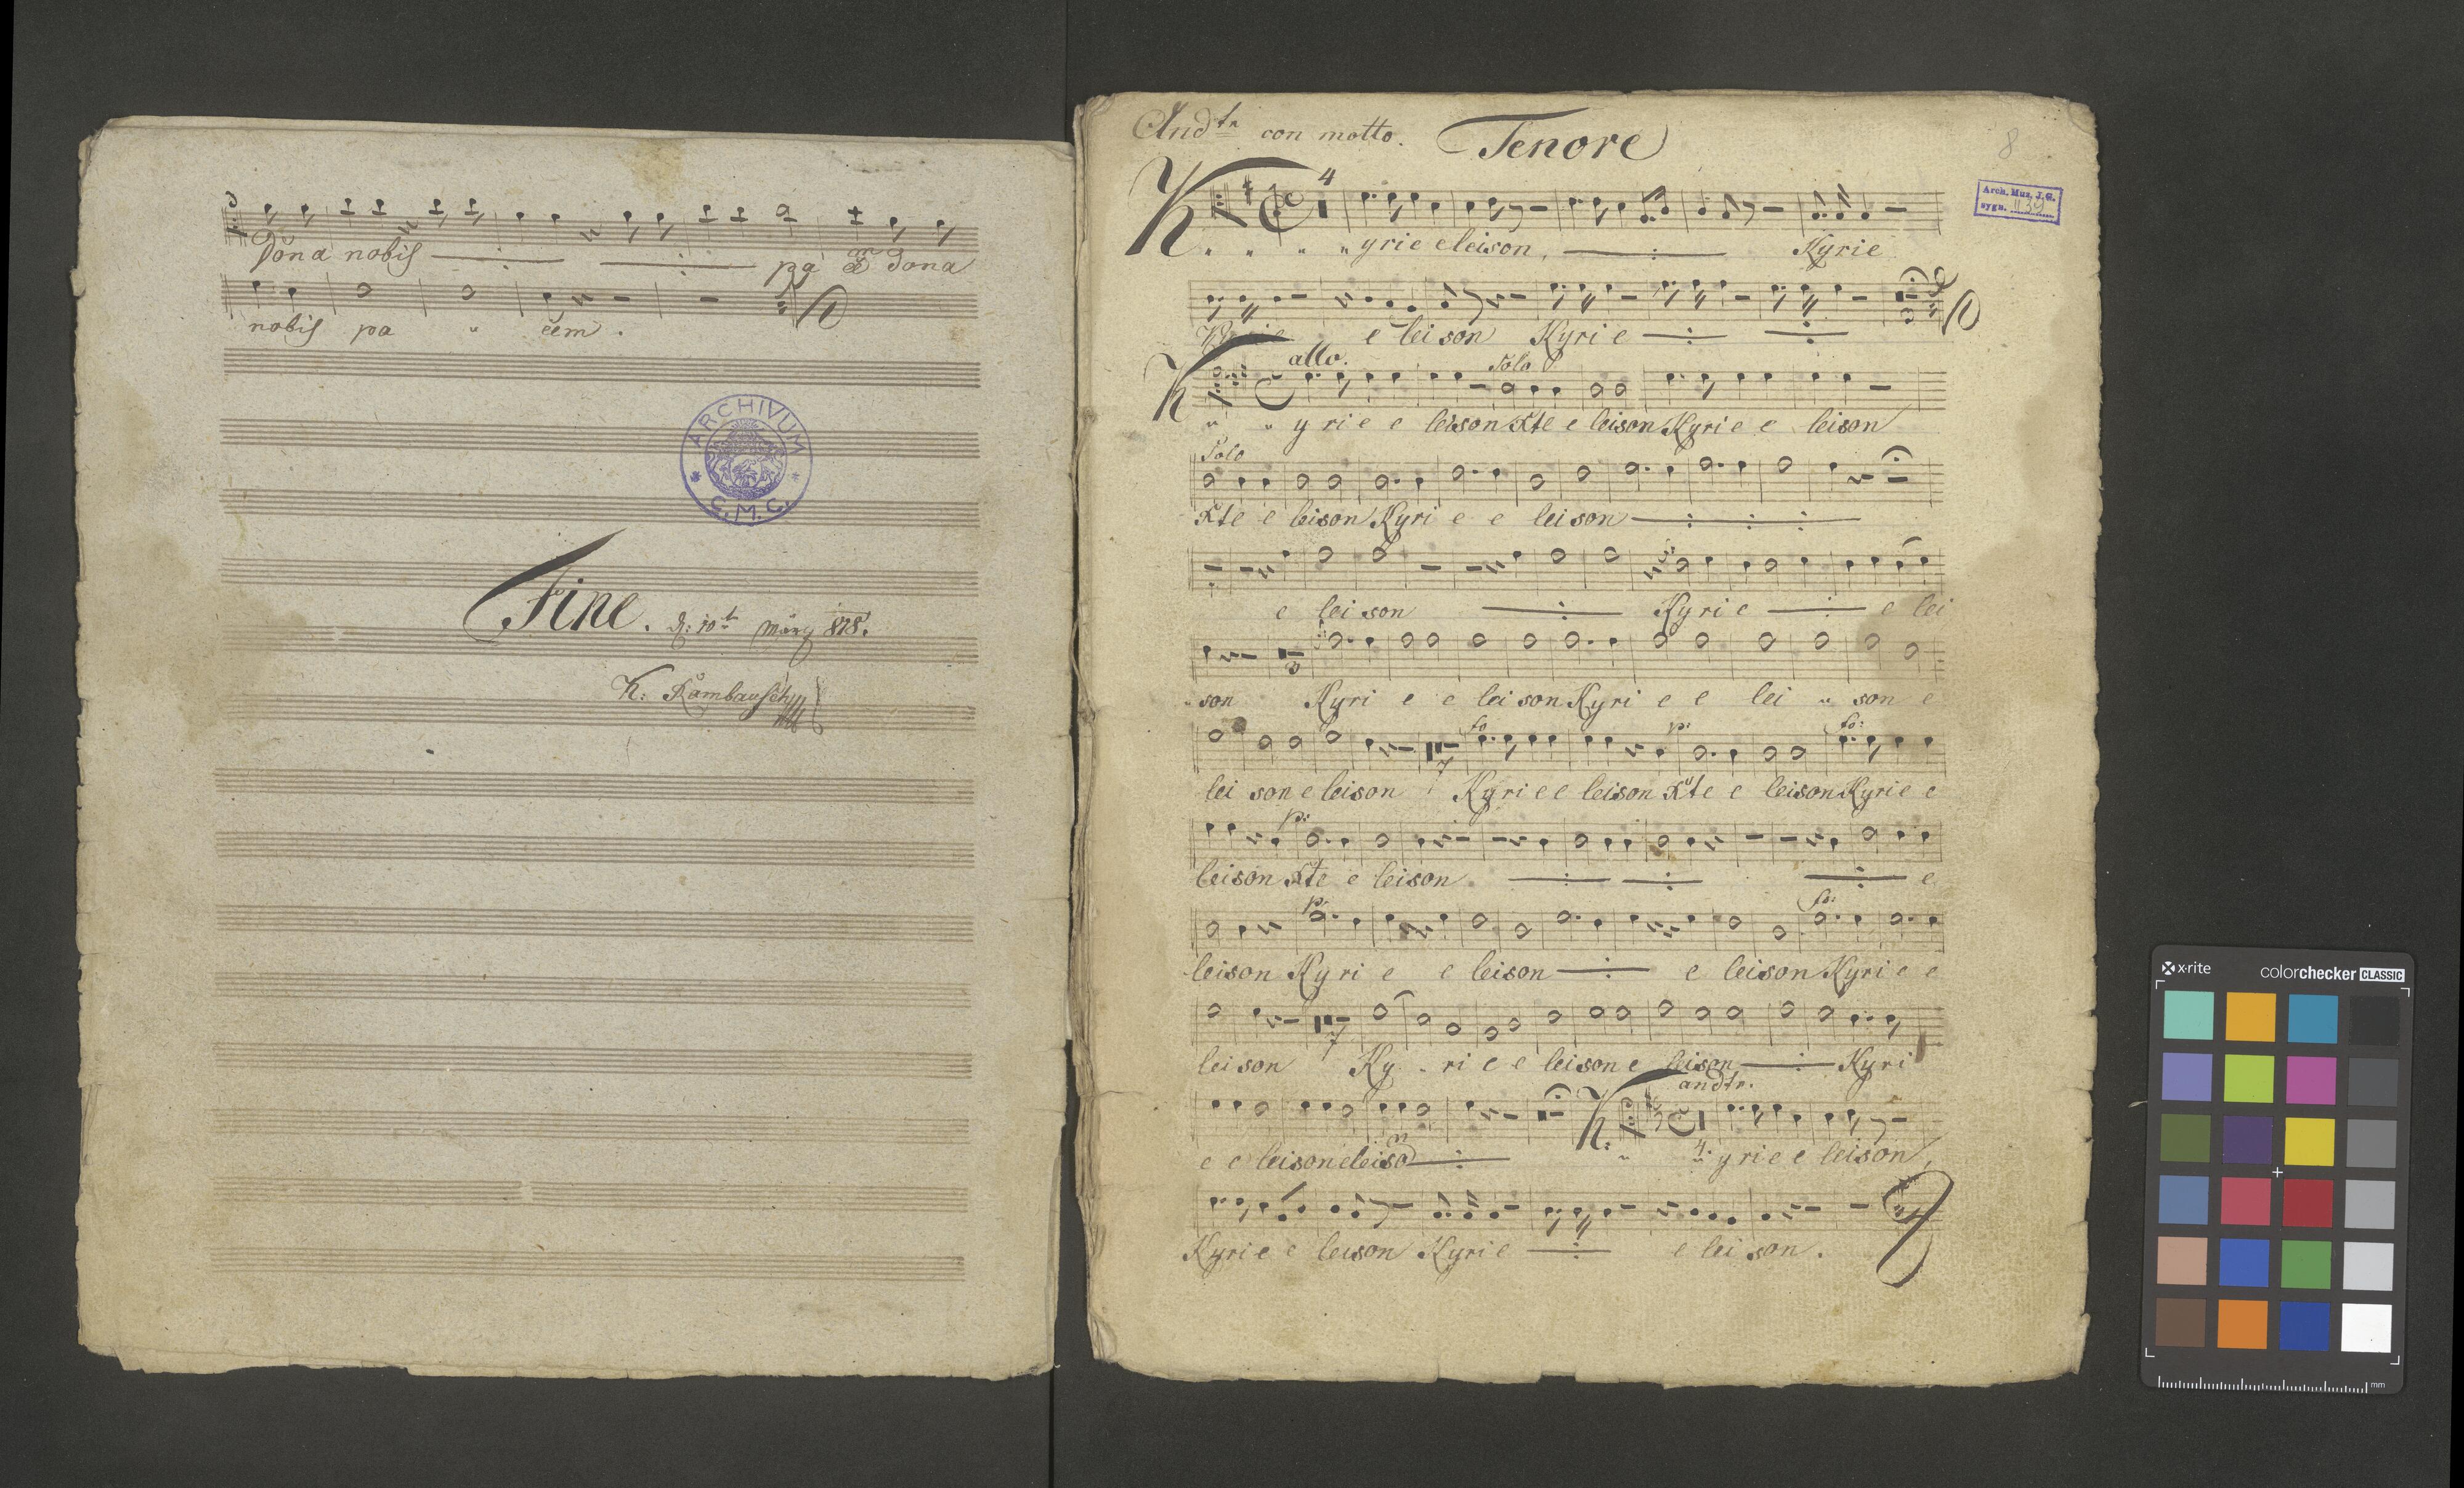 Dona nobis pa cem dona
nobis pa " cem.
ARCHIVUM
C.M.C.
Fine. d: 10t März 818.
Andte con motto. Tenore
8
Arch. Muz. J. G.
sygn. 1139
4
K " " " yrie eleison, Kyrie
Kyrie e leison Kyrie
allo. Solo
K " " yrie e leison Xte e leison Kyrie e leison
Solo
Xte e leison Kyri e e leison
e leison Kyrie e lei
" son Kyri e e leison Kyri e e lei " son e
3
fo p: fo:
lei son e leison Kyrie e leison Xte e leison Kyrie e
7
p:
leison Xte e leison e
p: fo:
leison Kyri e e leison e leison Kyri e e
leison Ky . ri e e leison e leison Kyri
7
andte.
e e leison eleison K: " " yrie e leison,
4.
Kyrie e leison Kyrie e leison.
x-rite colorchecker CLASSIC
mm